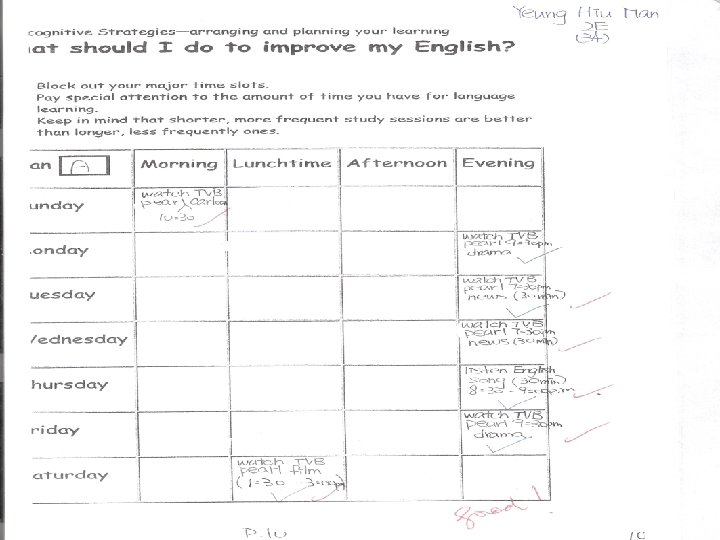 Yeung Hiu Man
2E
(34)
cognitive Strategies—arranging and planning your learning
at should I do to improve my English?
Block out your major time slots.
Pay special attention to the amount of time you have for language
learning.
Keep in mind that shorter, more frequent study sessions are better
than longer, less frequently ones.
an A Morning Lunchtime Afternoon Evening
unday
watch TVB
pearl cartoon
10:30
onday
watch TVB
pearl
drama
uesday
watch TVB
pearl 7:30pm
news (30min)
ednesday
watch TVB
pearl 7:30pm
news (30min)
hursday
listen English
song (30min)
8:30 - 9:00p.m
riday
watch TVB
pearl 9:30pm
drama
aturday
watch TVB
pearl film
(1:30 - 3:00pm)
Good!
P.10